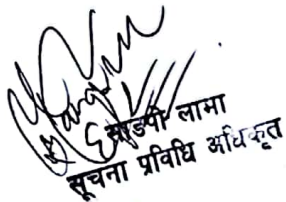 साङपो लामा
सूचना प्रविधि अधिकृत